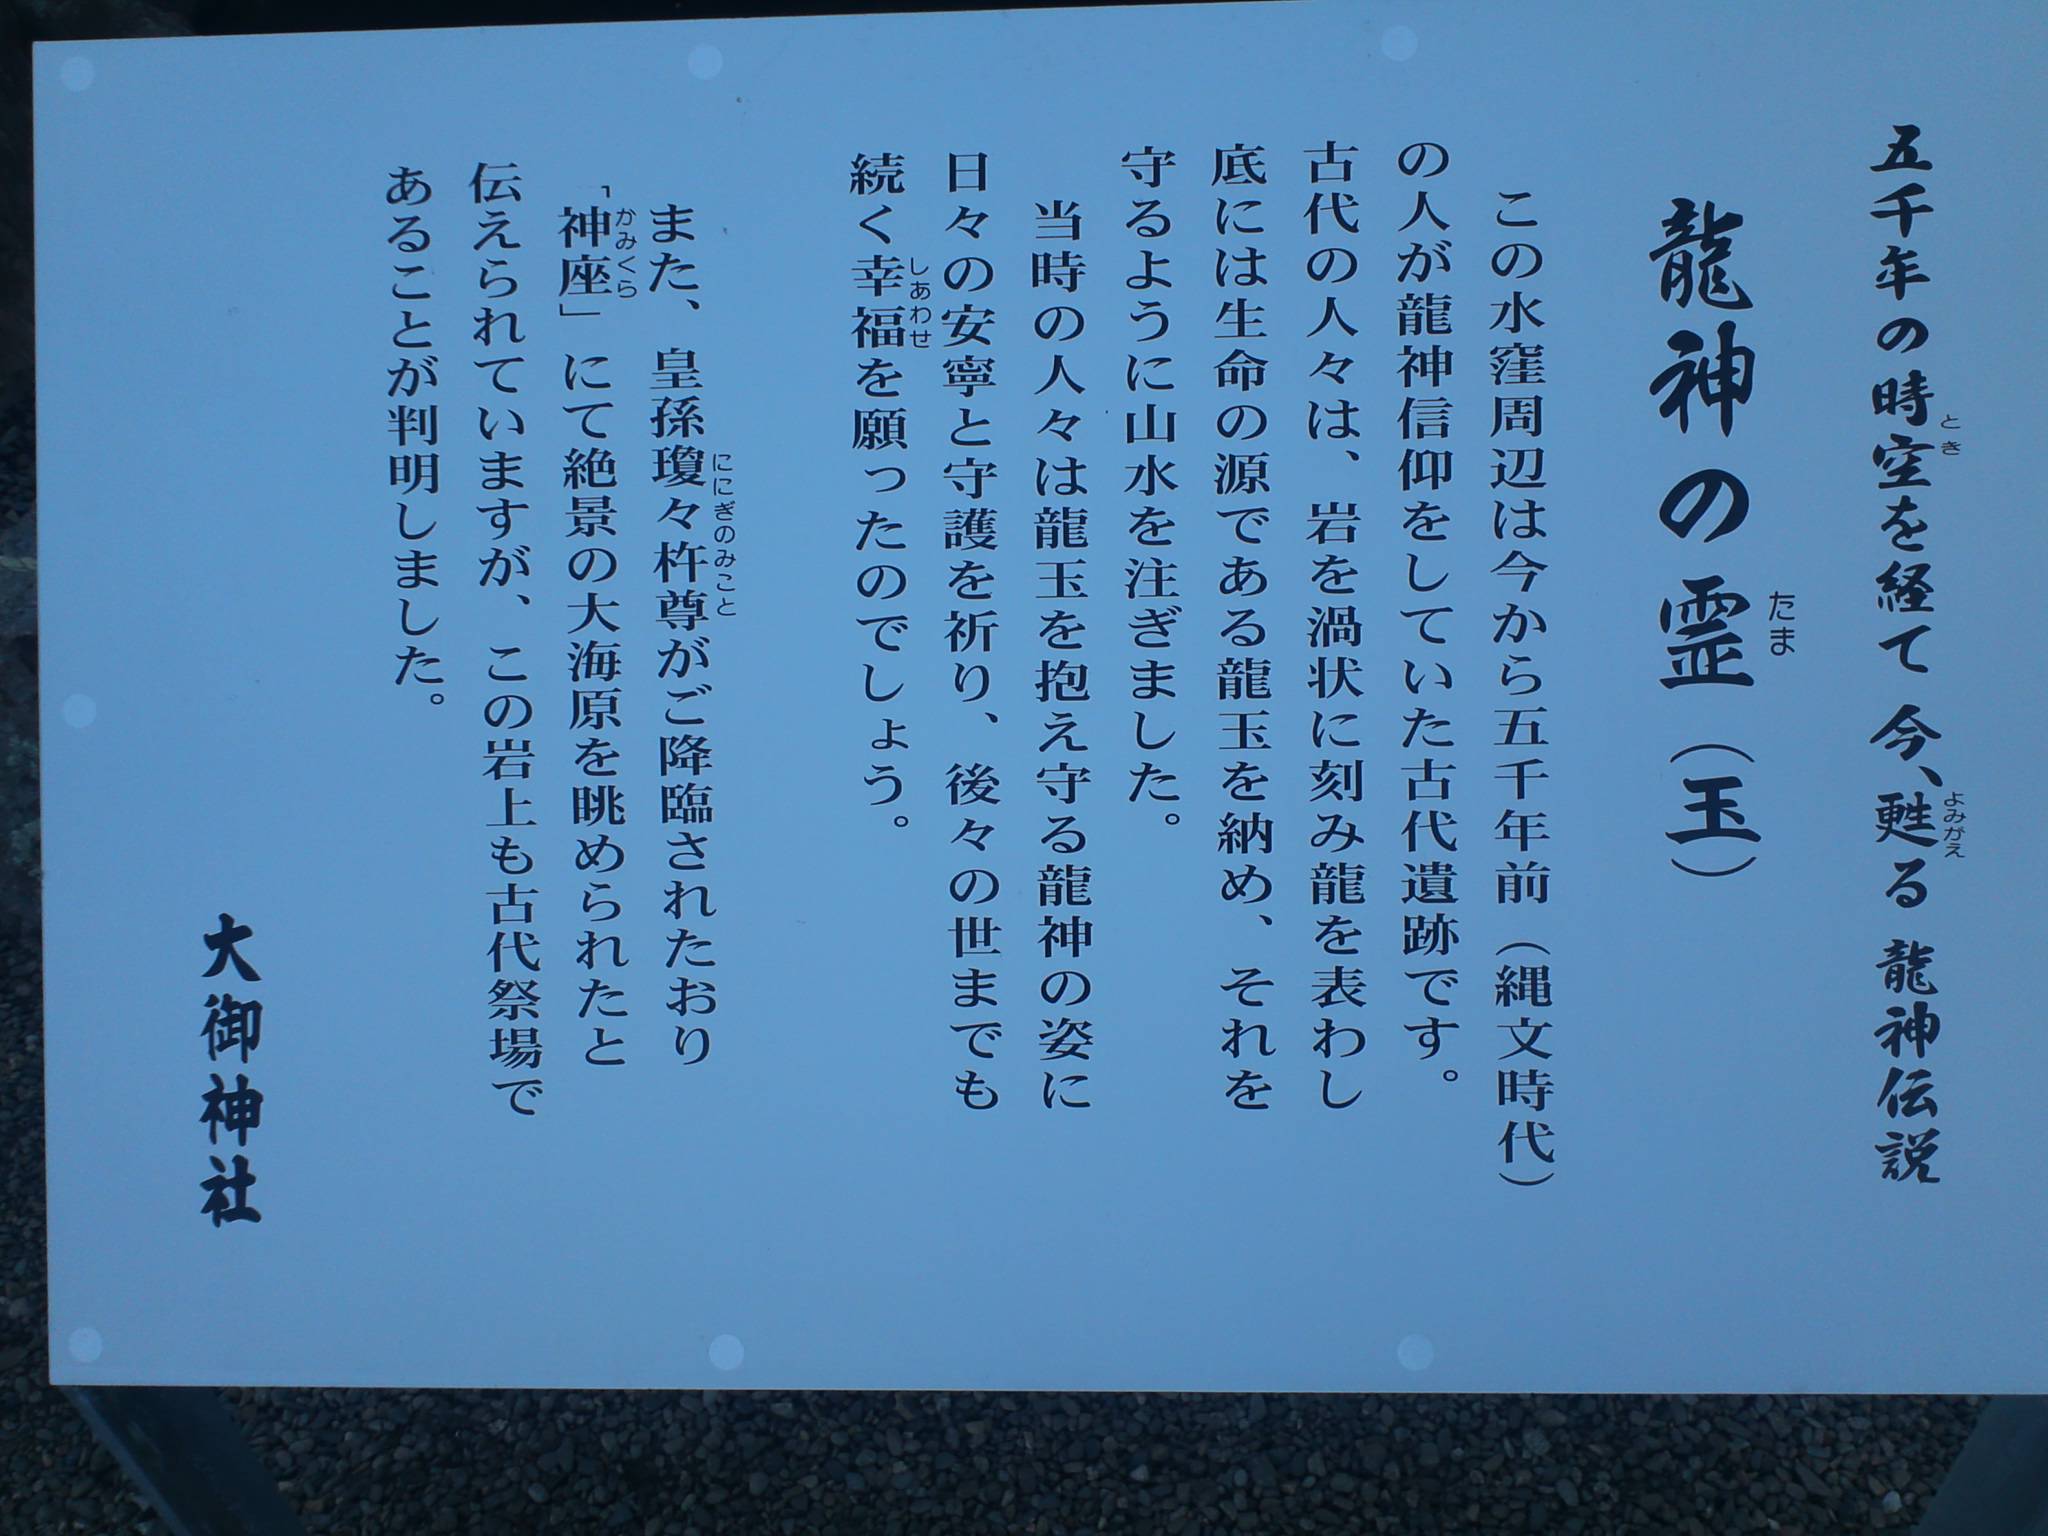 五千年の時空を経て 今、甦る 龍神伝説
とき
よみがえ
龍神の霊（玉）
たま
この水窪周辺は今から五千年前（縄文時代）
の人が龍神信仰をしていた古代遺跡です。
古代の人々は、岩を渦状に刻み龍を表わし
底には生命の源である龍玉を納め、それを
守るように山水を注ぎました。
当時の人々は龍玉を抱え守る龍神の姿に
日々の安寧と守護を祈り、後々の世までも
続く幸福を願ったのでしょう。
しあわせ
また、皇孫瓊々杵尊がご降臨されたおり
ににぎのみこと
「神座」にて絶景の大海原を眺められたと
かみくら
伝えられていますが、この岩上も古代祭場で
あることが判明しました。
大御神社